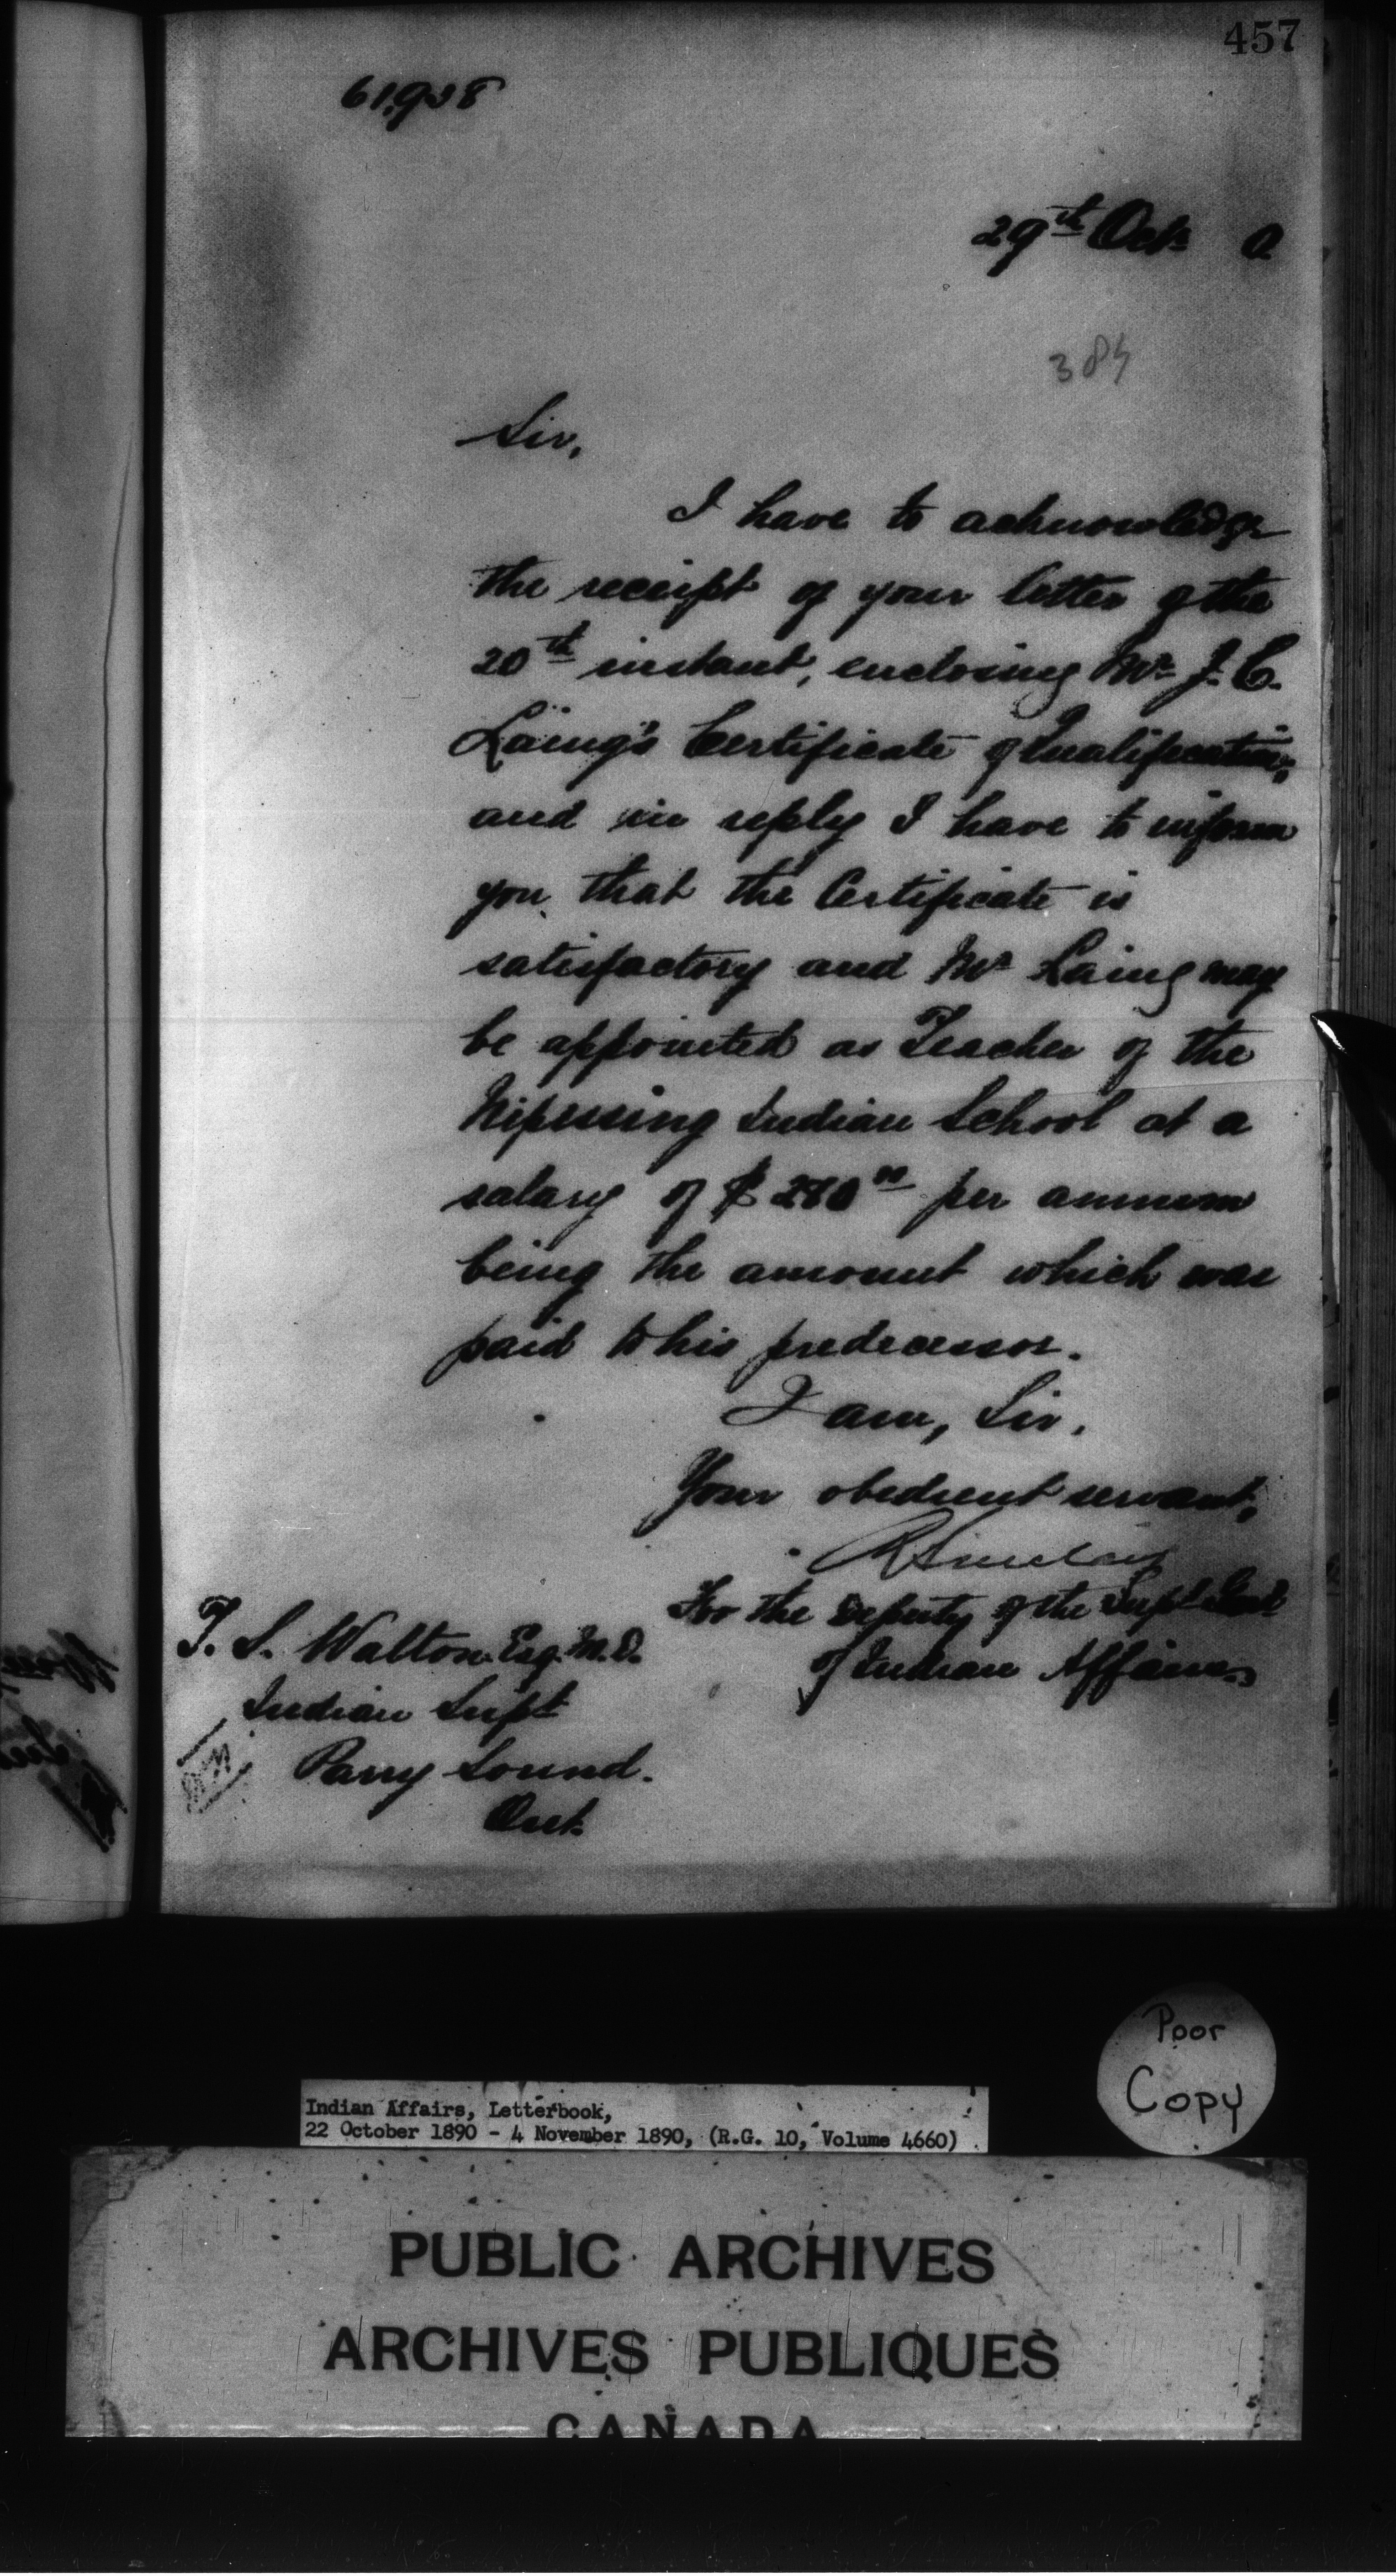 457
61,938
29th Oct. 0
384
Sir,
I have to acknowledge
the receipt of your letter of the
20th instant, enclosing Mr J. C.
Laing's Certificate of Qualification,
and in reply I have to inform
you that the Certificate is
satisfactory and Mr Laing may
be appointed as Teacher of the
Nipissing Indian School at a
salary of $ 280 00 per annum
being the amount which was
paid to his predecessor.
I am, Sir,
Your obedient servant,
R Sinclair
For the Deputy of the Supt Genl
of Indian Affairs
T. S. Walton Esq. M.D.
Indian Supt
Parry Sound.
Ont.
Poor
Copy
Indian Affairs, Letterbook,
22 October 1890 - 4 November 1890, (R.G. 10, Volume 4660)
PUBLIC ARCHIVES
ARCHIVES PUBLIQUES
CANADA